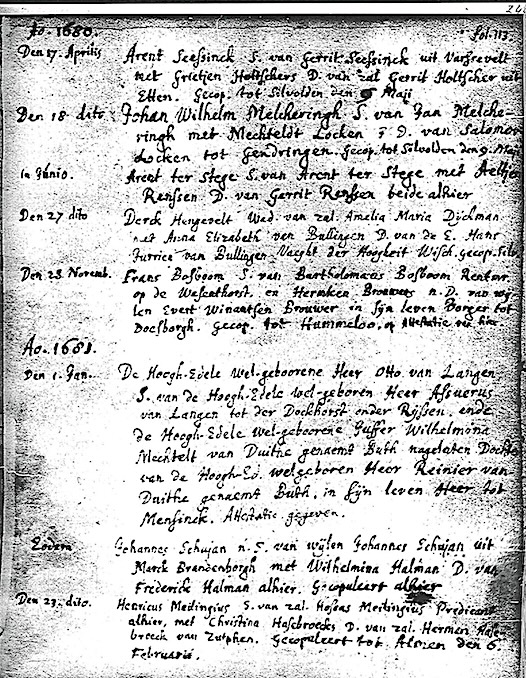 Ao. 1680. fol. 113.
Den 17. Aprilis Arent Seessinck S. van Gerrit Seessinck uit Varssevelt
met Grietjen Holtschers D. van zal Gerrit Holtscher uit
Etten. Gecop. tot Silvolden den Maji
Den 18 dito Johan Wilhelm Melcheringh S. van Jan Melche-
ringh met Mechteldt Locken D. van Salomon
Locken tot Gendringen. Gecop. tot Silvolden den 9. Maji
in Junio. Arent ter Stege S. van Arent ter Stege met Aeltjen
Renssen D. van Gerrit Renssen beide alhier
Den 27 dito Derck Hengevelt Wed. van zal. Amelia Maria Dijckman
met Anna Elizabeth van Bullingen D. van de E. Hans
Jurrien van Bullingen Vaeght der Hoogheit Wisch. gecop. Silv.
Den 28 Novemb. Frans Bosboom S. van Bartholomaeus Bosboom Rentmr.
op de Wasenthorst, en Hermken Brouwers n. D. van wij-
len Evert Winantsen Brouwer in sijn leven Borger tot
Doesborgh. Gecop. tot Hummeloo, op Attestatie van hier
Ao. 1681.
Den 1. Jan. De Hoogh-Edele Wel-geboorene Heer Otto van Langen
S. van de Hoogh-Edele wel-geboren Heer Assuerus
van Langen tot der Dockhorst onder Rijssen, ende
de Hoogh-Edele wel-geboorene Juffer Wilhelmona
Mechtelt van Duithe genaemt Buth nagelaten Dochter
van de Hoogh-Ed. welgeboren Heer Reinier van
Duithe genaemt Buth, in sijn leven Heer tot
Mensinck. Attestatie gegeven.
Eodem Johannes Schujan n. S. van wijlen Johannes Schujan uit
Marck Brandenborgh met Wilhelmina Halman D. van
Frederick Halman alhier. Gecopuleert alhier
Den 23. dito. Henricus Meilingius S. van zal. Hoseas Meilingius Predicant
alhier, met Christina Hasebroecks D. van zal. Herman Hase-
broeck van Zutphen. Gecopuleert tot Almen den 6
Februarii.